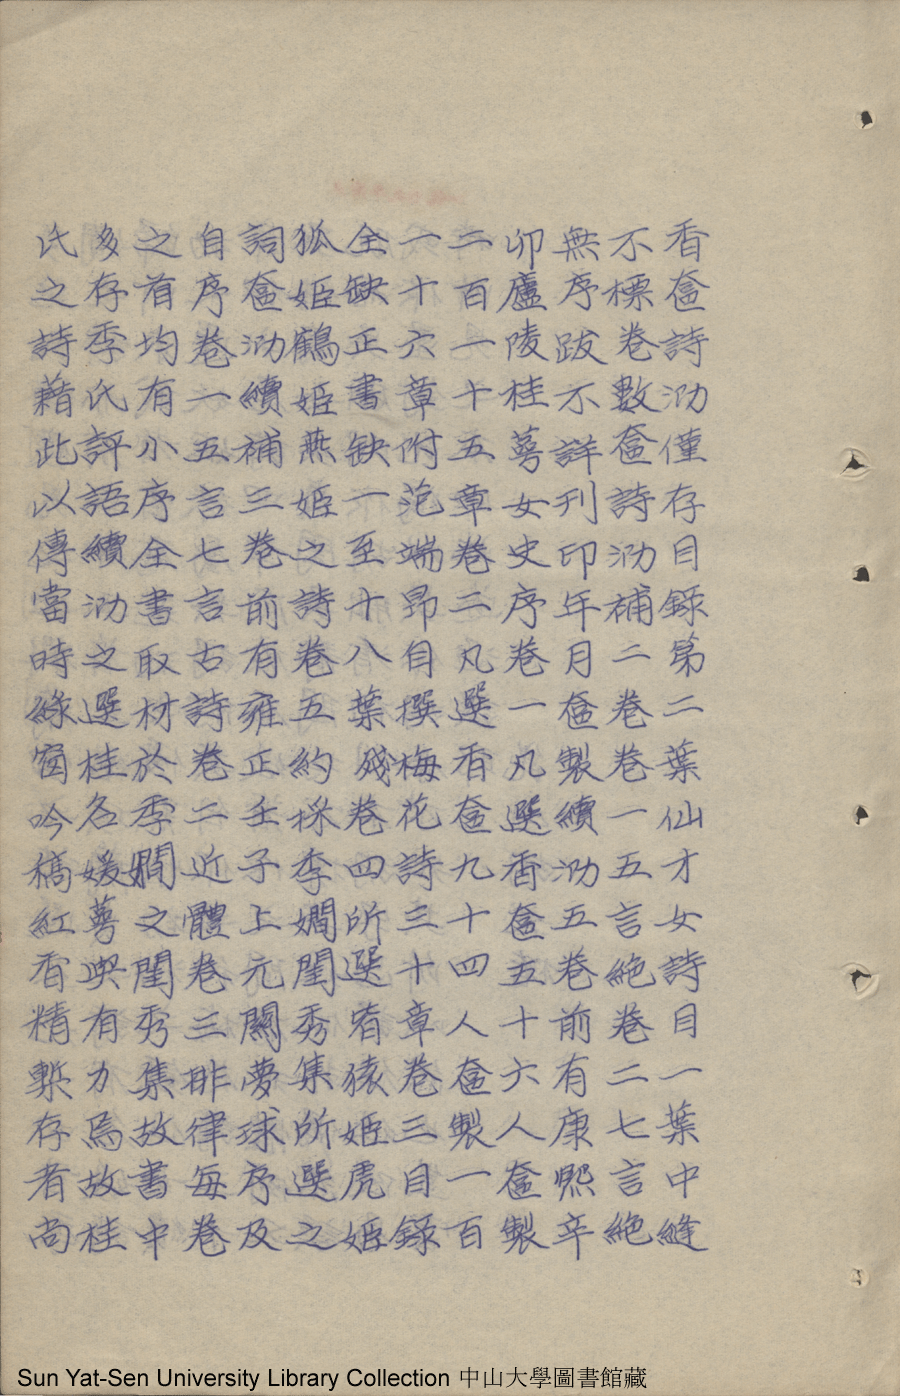 香奩詩泐僅存目錄第二葉仙才女詩目一葉中縫
不標卷數奩詩泐補二卷卷一五言絶卷二七言絶
無序跋不詳刊印年月奩製續泐五卷前有康熙辛
卯廬陵桂萼女史序卷一凡選香奩五十六人奩製
二百一十五章卷二凡選香奩九十四人奩製一百
一十六章附范端昂自撰梅花詩三十章卷三目錄
全缺正書缺一至十八葉殘卷四所選有猿姬虎姬
狐姬鶴姬燕姬之詩卷五約採季嫺閨秀集所選之
詞奩泐續補三卷前有雍正壬子上元關夢球序及
自序卷一五言七言古詩卷二近體卷三排律每卷
之首均有小序全書取材於季嫺之閨秀集故書中
多存季氏評語續泐之選桂名媛萼與有力焉故桂
氏之詩藉此以傳當時綠窗吟稿紅香精槧存者尚
Sun Yat-Sen University Library Collection 中山大學圖書館藏